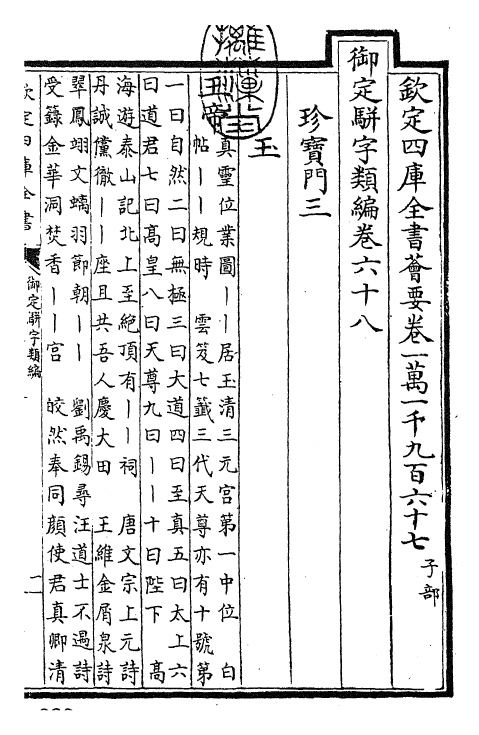 欽定四庫全書薈要卷一萬一千九百六十七 子部
御定駢字類編卷六十八
珍寶門三
玉
玉帝 真靈位業圖丨丨居玉清三元宫第一中位 白
帖丨丨規時 雲笈七籤三代天尊亦有十號第
一曰自然二曰無極三曰大道四曰至真五曰太上六
曰道君七曰高皇八曰天尊九曰丨丨十曰陛下 高
海遊泰山記北上至絶頂有丨丨祠 唐文宗上元詩
丹誠儻徹丨丨座且共吾人慶大田 王維金屑泉詩
翠鳳翊文螭羽節朝丨丨 劉禹錫尋汪道士不遇詩
受籙金華洞焚香丨丨宫 皎然奉同顔使君真卿清
欽定四庫全書
御定駢字類編
二